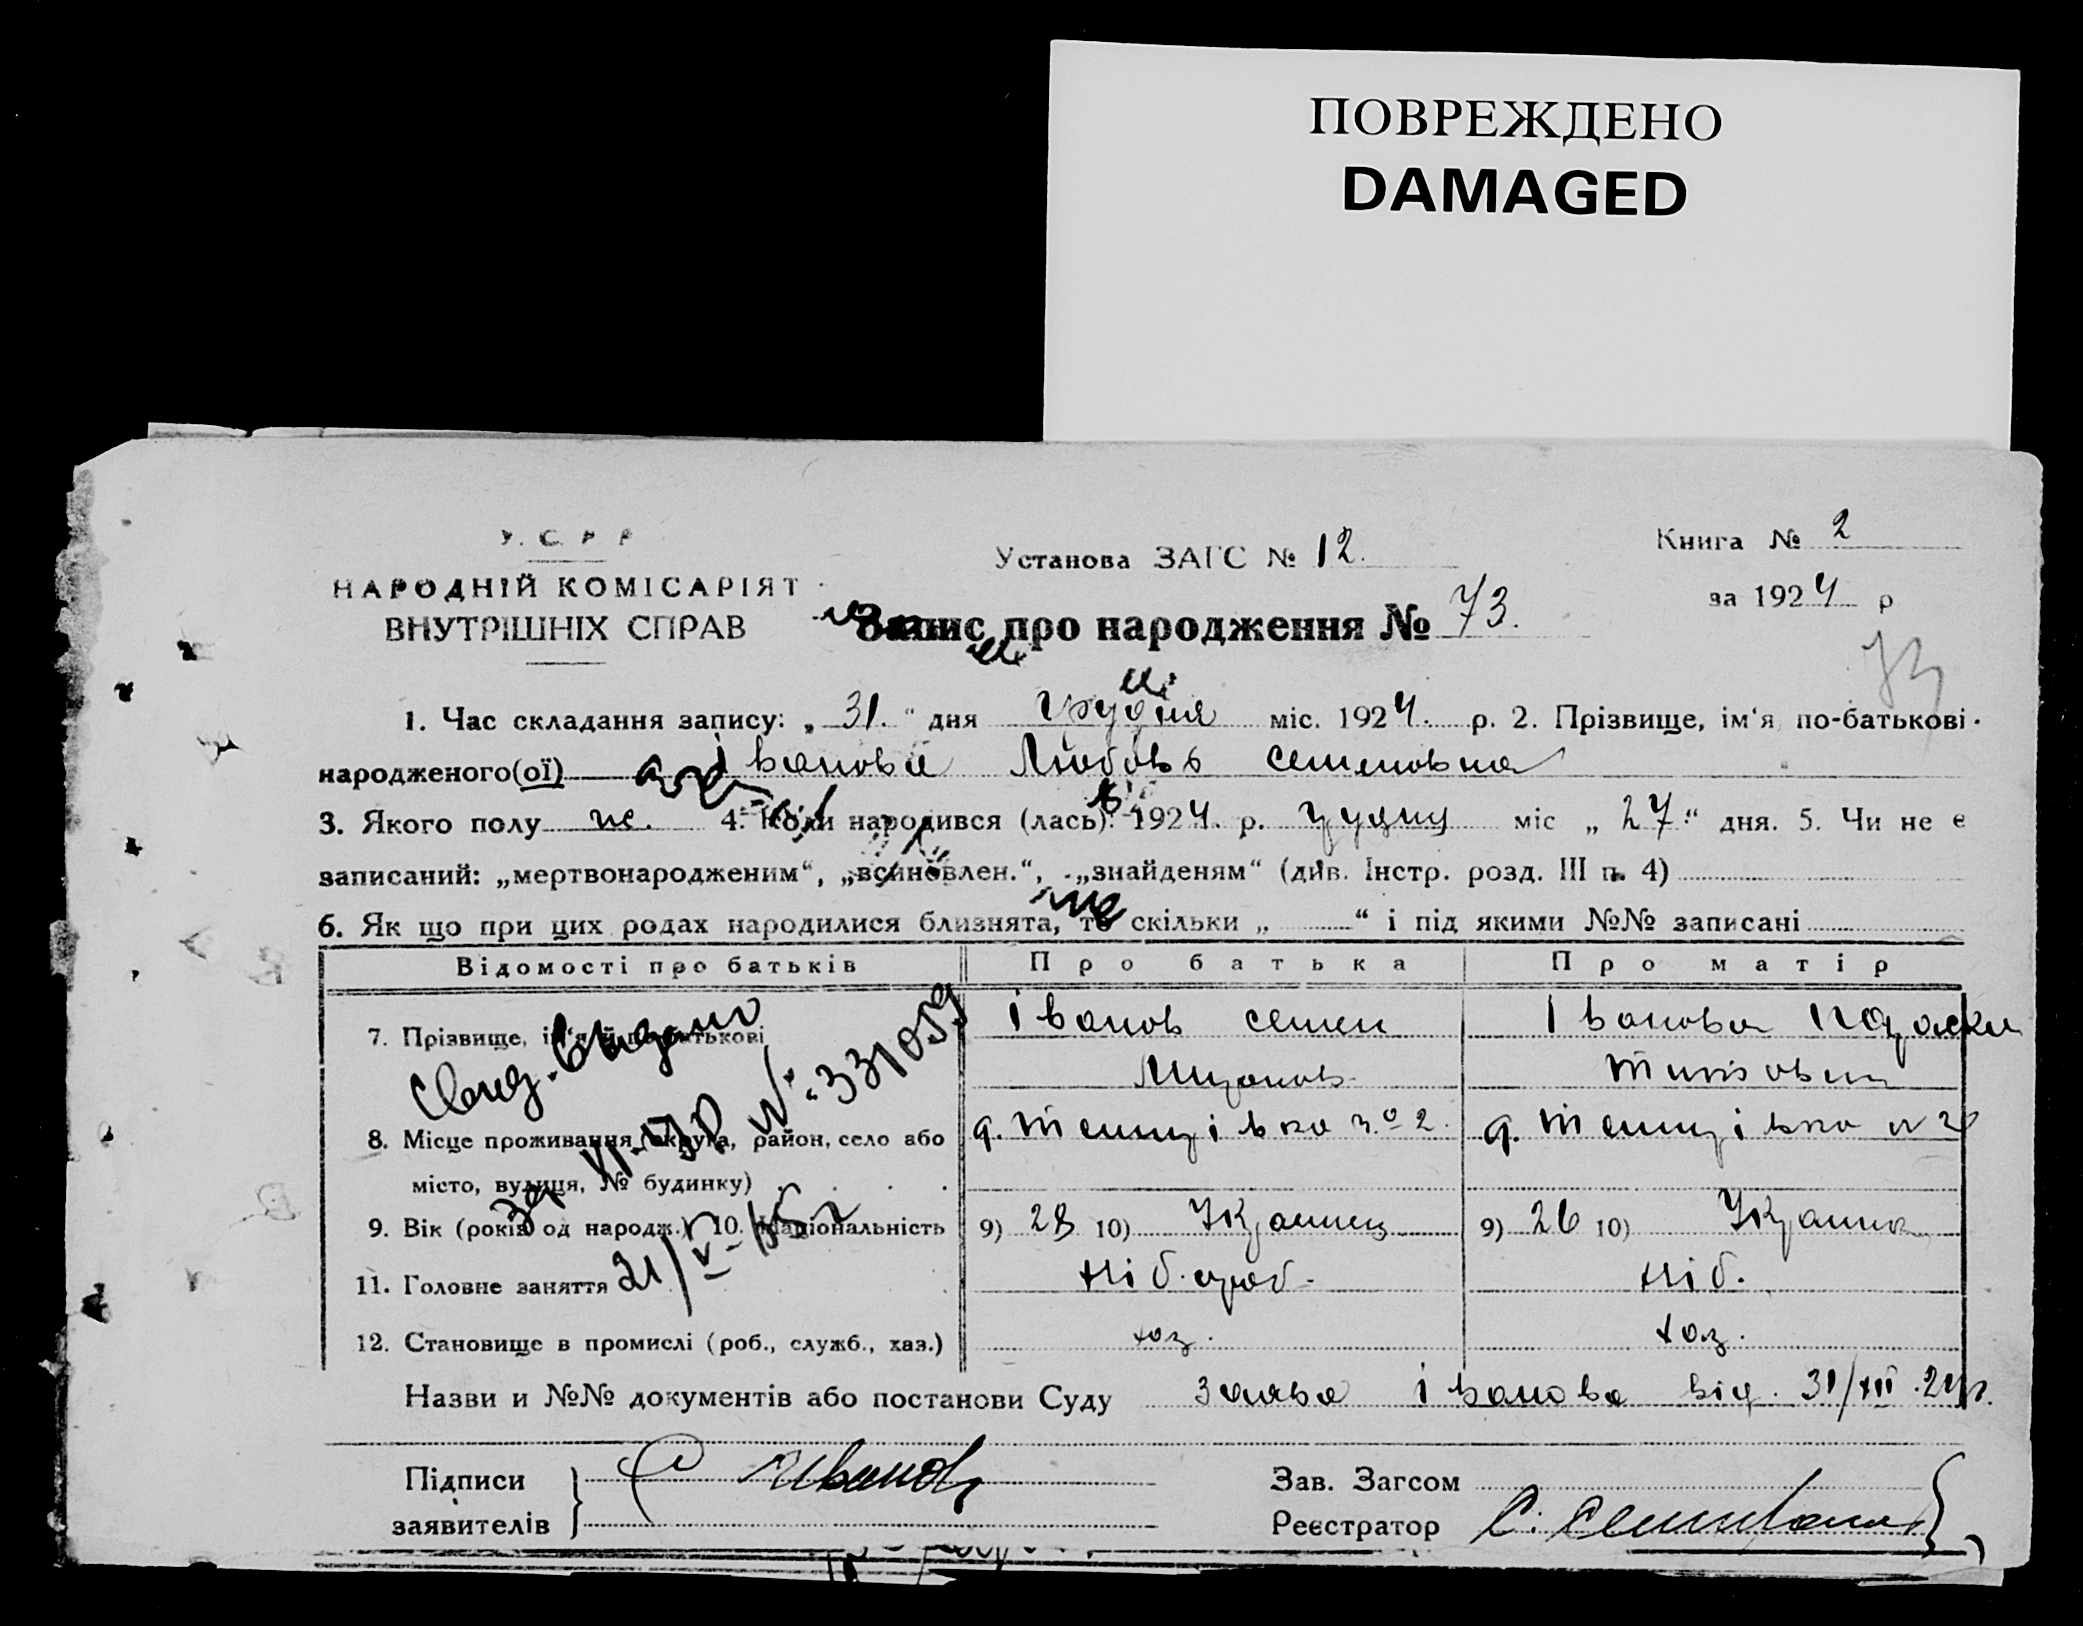 ПОВРЕЖДЕНО
DAMAGED
У. С. Р. Р.
НАРОДНІЙ КОМІСАРІЯТ
ВНУТРІШНІХ СПРАВ
Установа ЗАГС № 12.
Книга № 2
за 1924 р
Запис про народження № 73.
73
1. Час складання запису: „ 31. " дня грудня міс. 1924. р. 2. Прізвище, ім'я, по-батькові
народженого(ої) Іванова Любовь Семеновна
3. Якого полу ж. 4. Коли народився (лась): 1924. р. грудня міс „ 27 " дня. 5. Чи не є
записаний: „мертвонародженим", „всиновлен.", „знайденям" (див. Інстр. розд. III п. 4)
6. Як що при цих родах народилися близнята, то скільки „ " і під якими №№ записані
Відомості про батьків Про батька Про матір
7. Прізвище, ім'я й по-батькові Іванов Семен Іванова Параска
Свид. выдано
за № 331059
21/V-45 г
8. Місце проживання (округа, район, село або
місто, вулиця, № будинку)
9. Вік (років од народж.) 10. Національність 9) 28 10) Українец 9) 26 10) Українка
11. Головне заняття хліб. хліб.
12. Становище в промислі (роб., служб., хаз.) хаз. хаз.
Назви и №№ документів або постанови Суду Заява Іванова від. 31/XII.24 р.
Підписи
заявителів
С Иванов
Зав. Загсом
Реєстратор